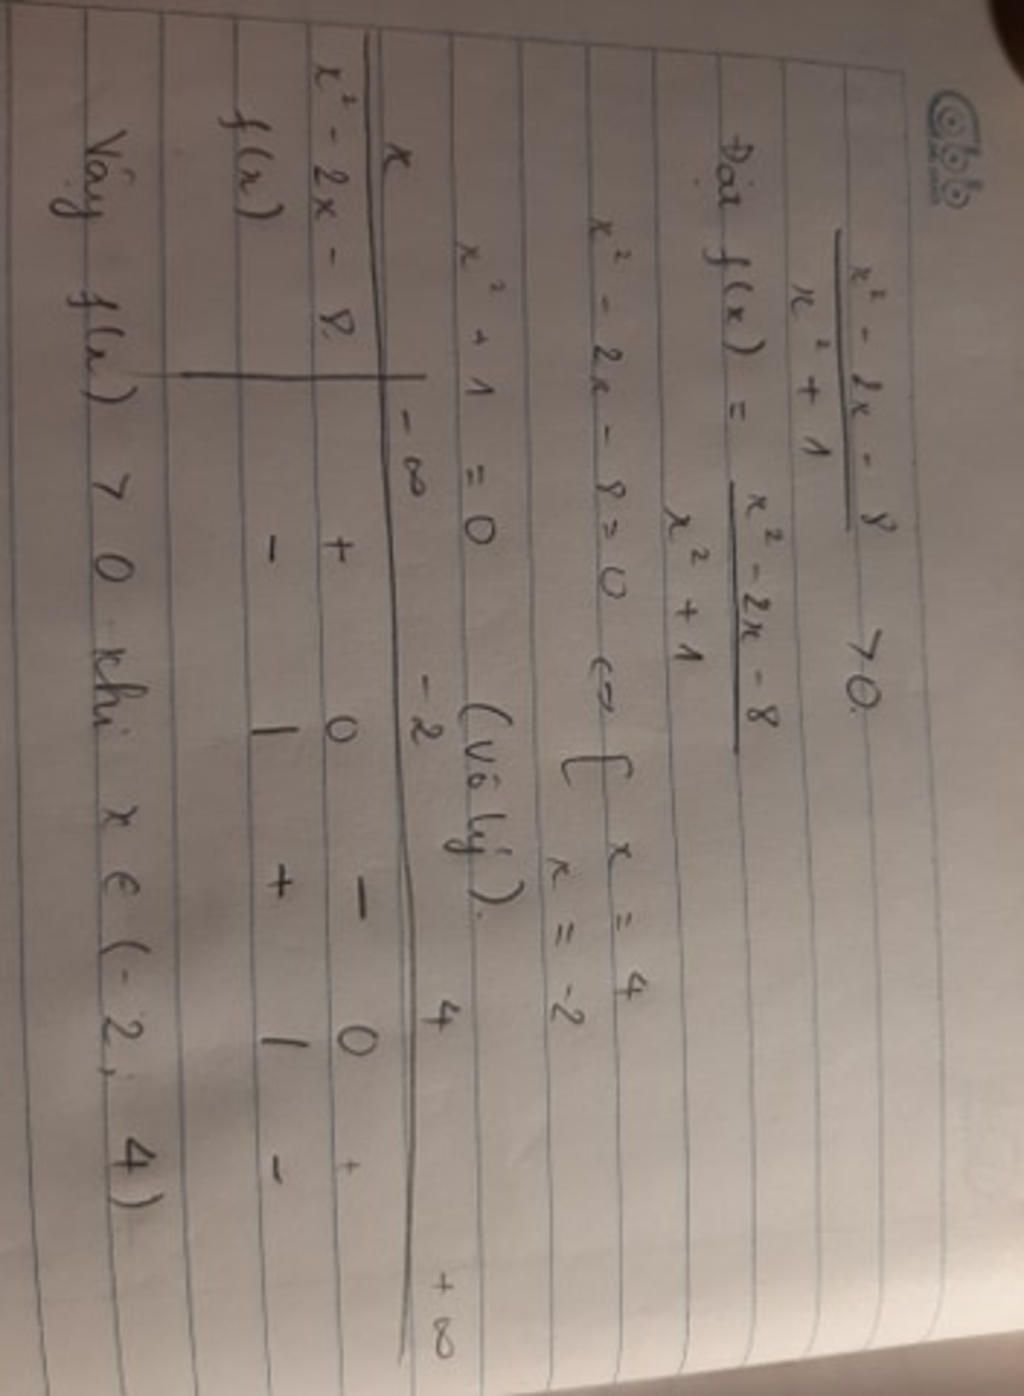 x² - 2x - 8 > 0.
x² + 1
Đặt f(x) = x² - 2x - 8
x² + 1
x² - 2x - 8 = 0 <=> [ x = 4
x = -2
x² + 1 = 0 (vô lý).
x -∞ -2 4 +∞
x² - 2x - 8 + 0 - 0 +
f(x) - | + | -
Vậy f(x) > 0 khi x ∈ (-2; 4)